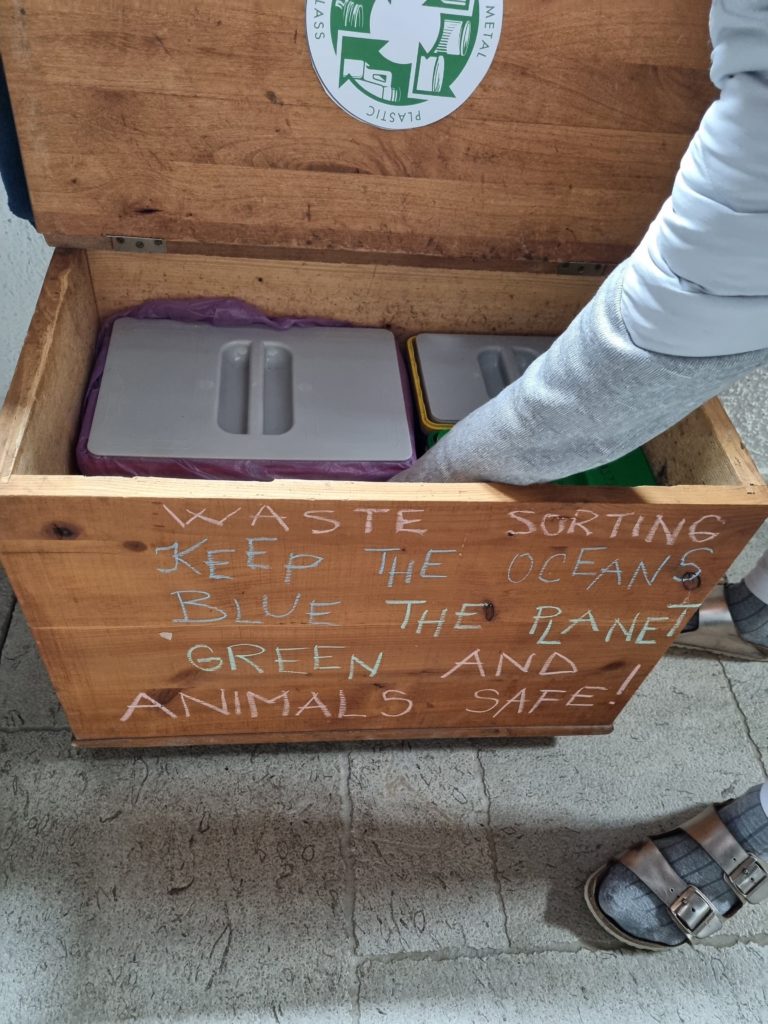 METAL
GLASS
PLASTIC
WASTE SORTING
KEEP THE OCEANS
BLUE THE PLANET
GREEN AND
ANIMALS SAFE!